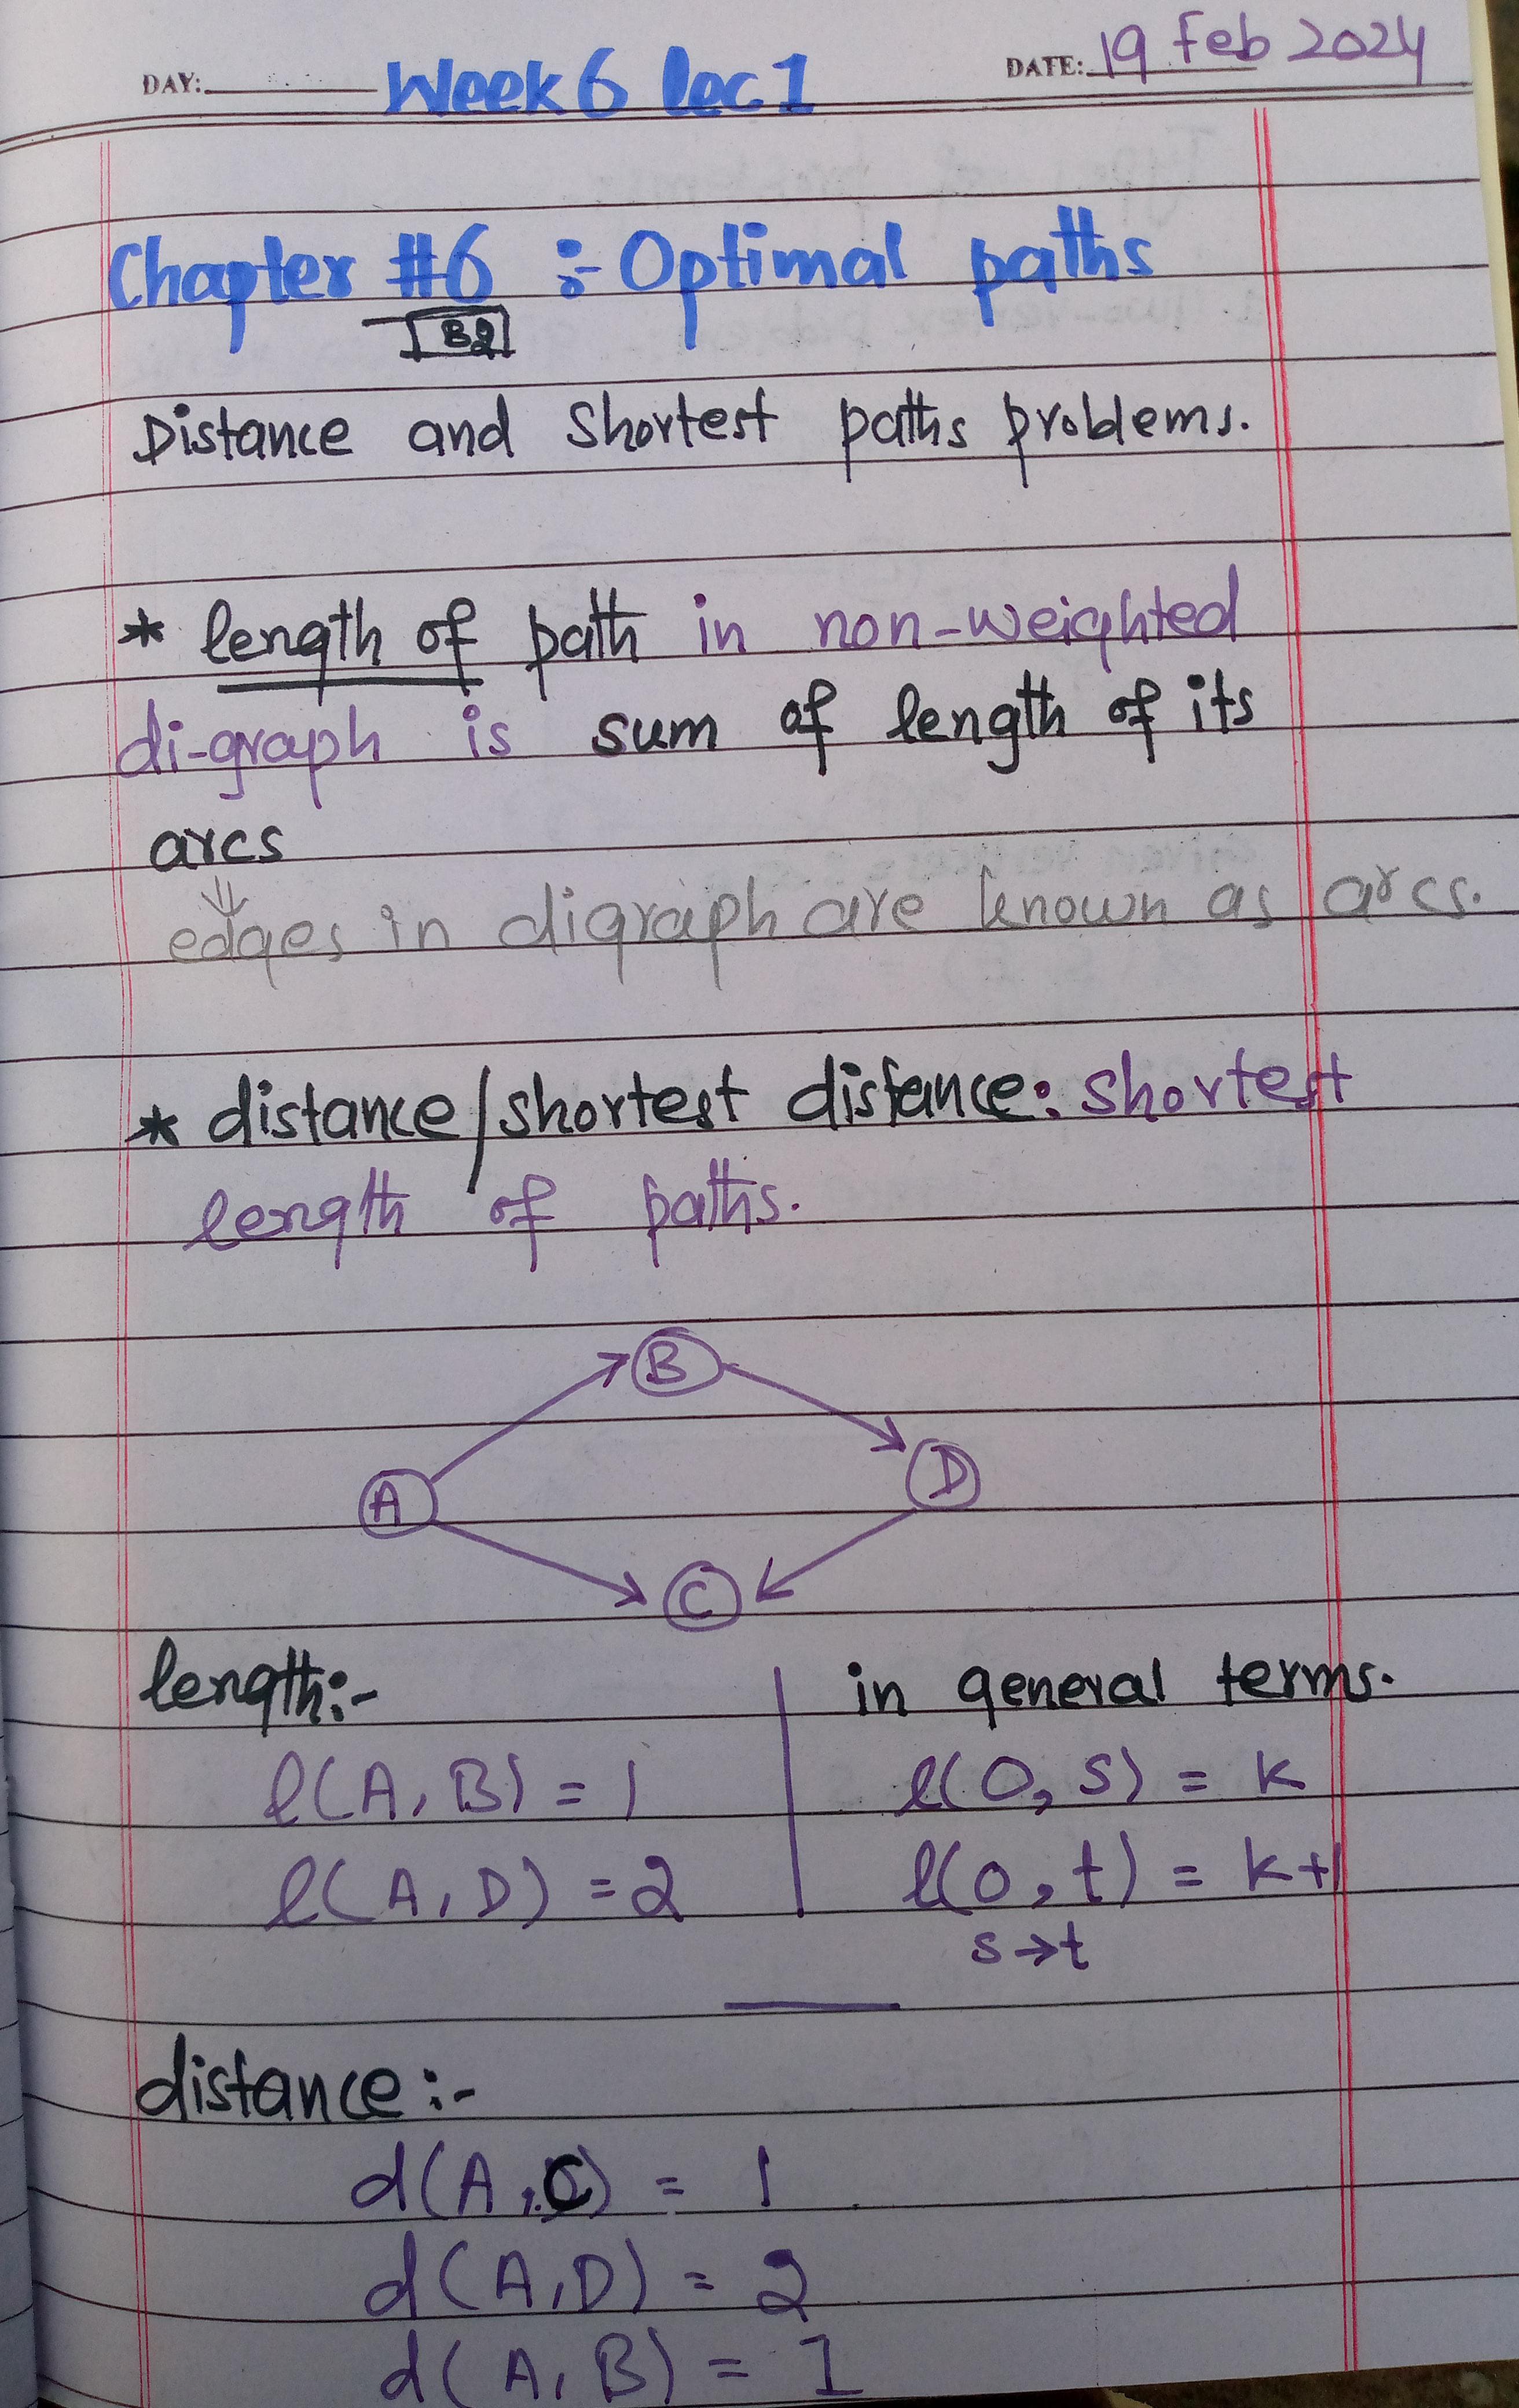 DAY: Week 6 lec 1 DATE: 19 Feb 2024
Chapter #6 :- Optimal paths
B2
Distance and Shortest paths problems.
* length of path in non-weighted
di-graph is sum of length of its
arcs
⇓
edges in digraph are known as arcs.
* distance/shortest distance: shortest
length of paths.
B
D
A
C
length:- in general terms.
l(A, B) = 1 l(0, s) = k
l(A, D) = 2 l(0, t) = k+1
s→t
distance:-
d(A, C) = 1
d(A, D) = 2
d(A, B) = 1